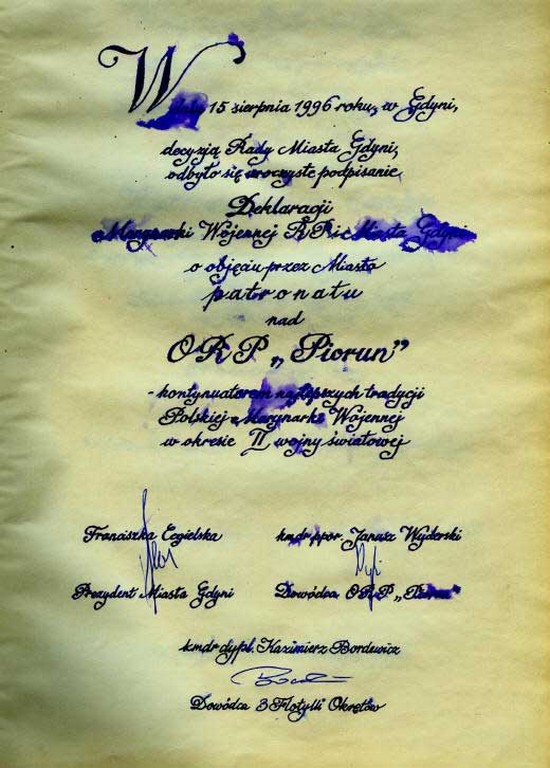 W dniu 15 sierpnia 1996 roku, w Gdyni,
decyzją Rady Miasta Gdyni,
odbyło się uroczyste podpisanie
Deklaracji
Marynarki Wojennej RP i Miasta Gdyni
o objęciu przez Miasto
patronatu
nad
ORP „Piorun”
- kontynuatorem najlepszych tradycji
Polskiej Marynarki Wojennej
w okresie II wojny światowej
Franciszka Cegielska
kmdr ppor. Janusz Wyderski
Prezydent Miasta Gdyni
Dowódca ORP „Piorun”
kmdr dypl. Kazimierz Bordewicz
Dowódca 3 Flotylli Okrętów